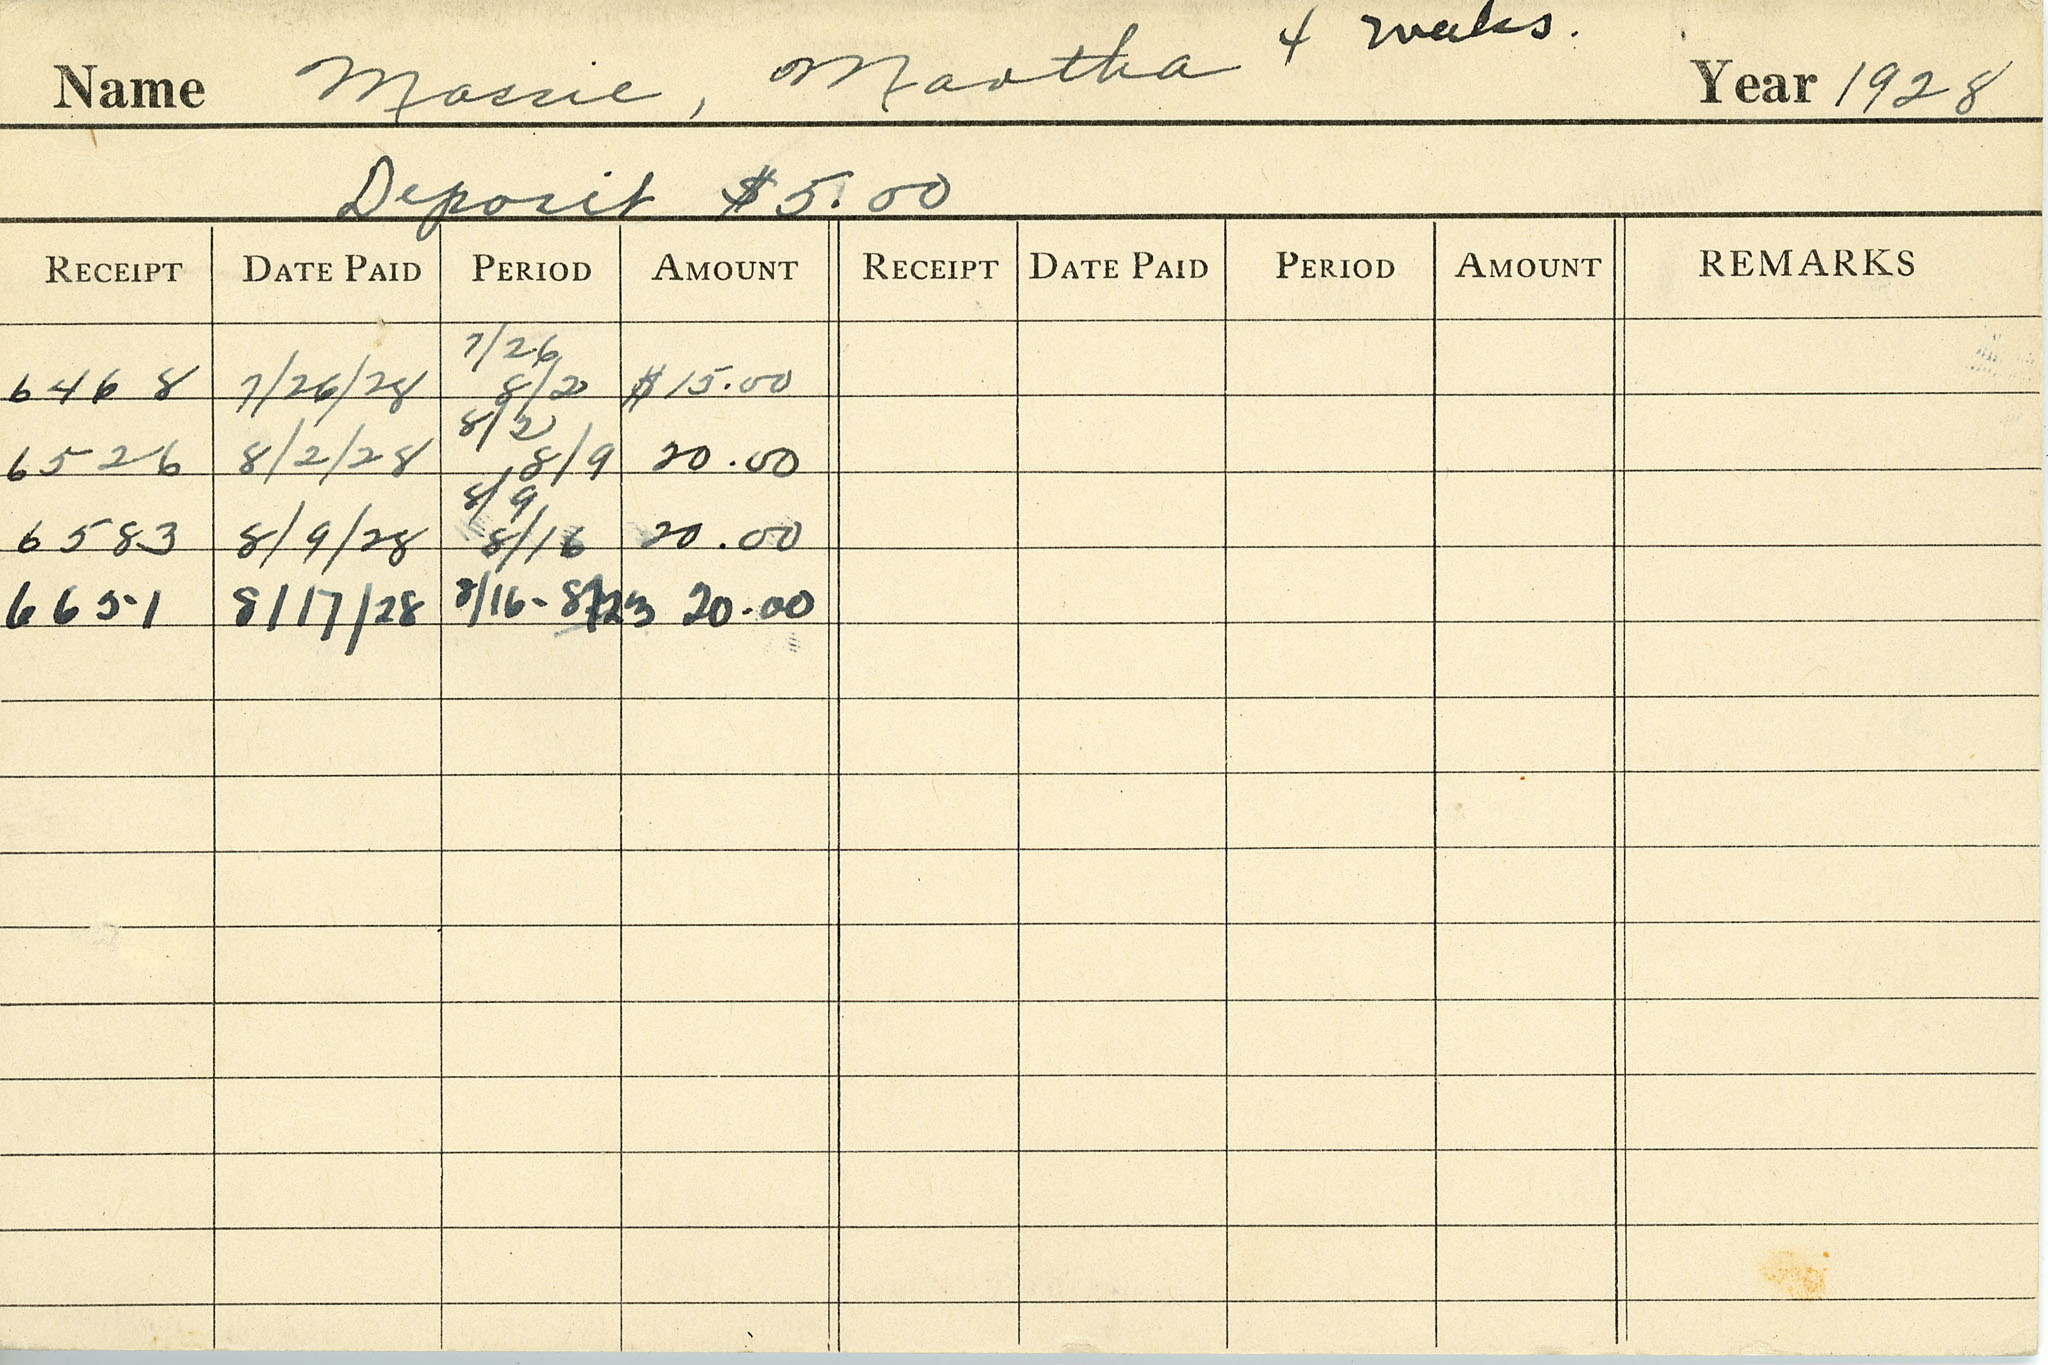 4 weeks.
Name Massie, Martha Year 1928
Deposit $5.00
RECEIPT DATE PAID PERIOD AMOUNT RECEIPT DATE PAID PERIOD AMOUNT REMARKS
7/26
6468 7/26/28 8/2 $15.00
8/2
6526 8/2/28 8/9 20.00
8/9
6583 8/9/28 8/16 20.00
6651 8/17/28 8/16-8/23 20.00